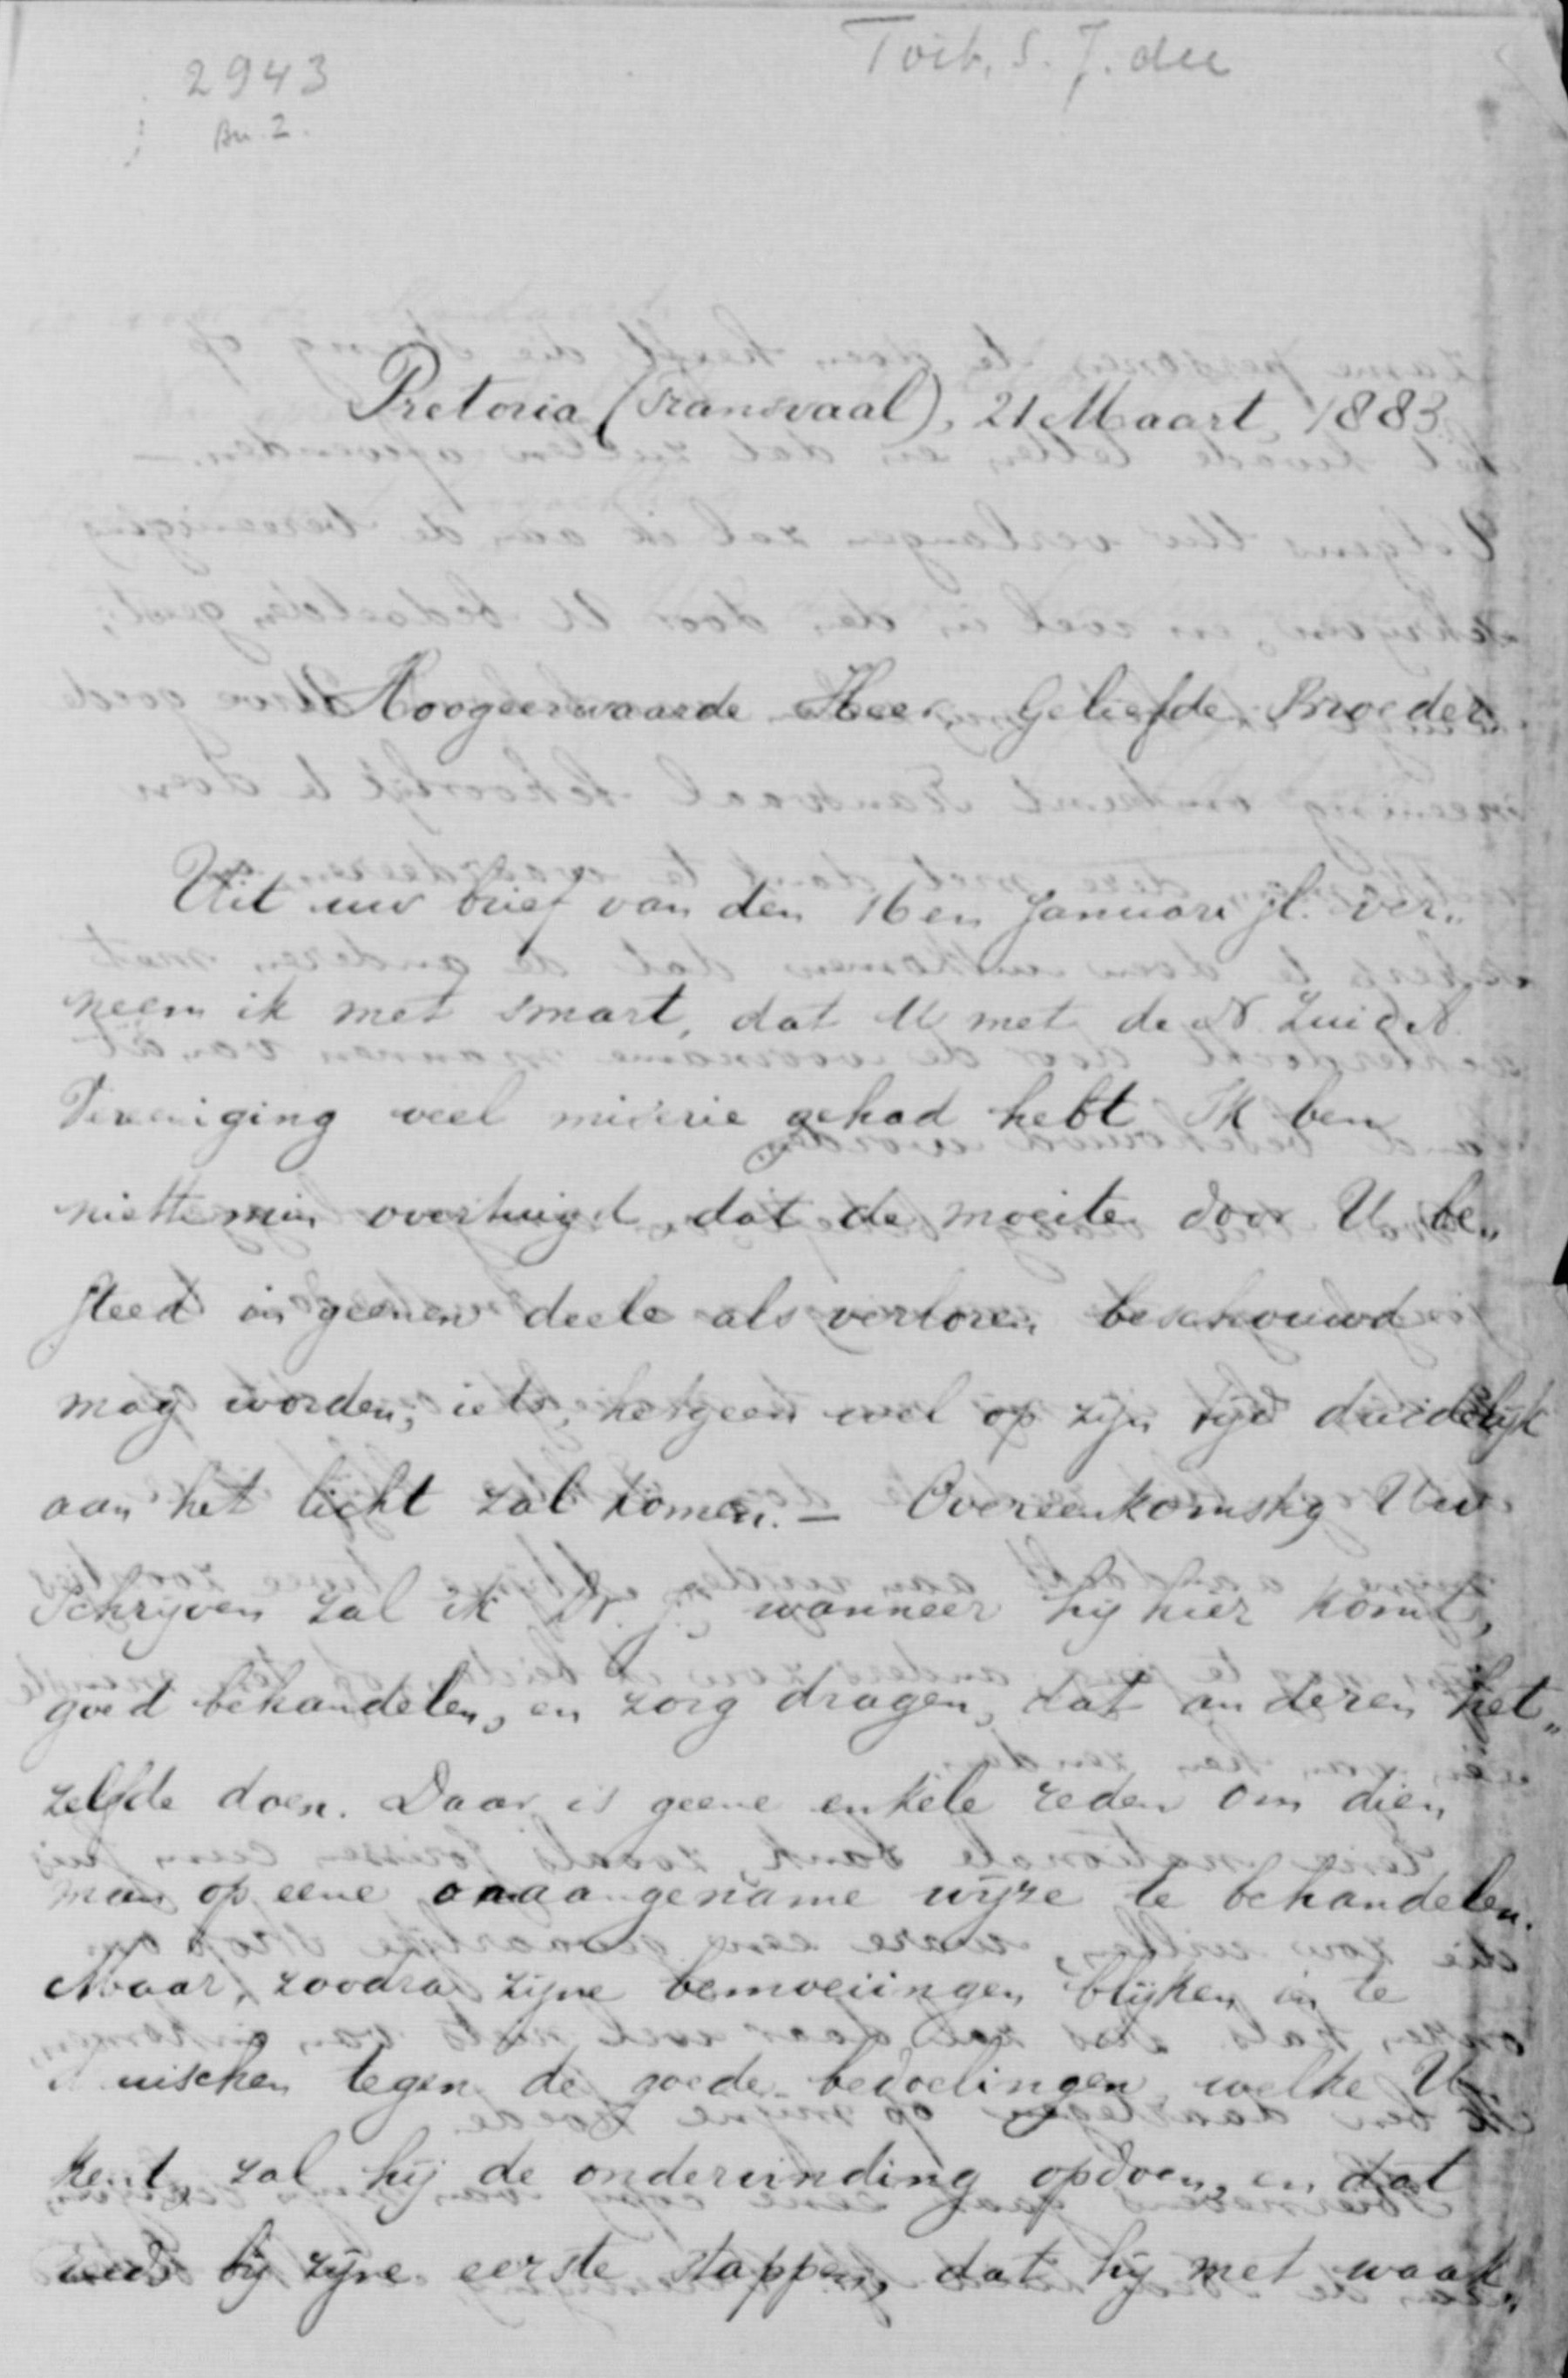 2943
Toit, S. J. du
Bu. 2.
Pretoria (Transvaal), 21 Maart 1883
Hoogeerwaarde Heer, Geliefde Broeder.
Uit uw brief van den 16en Januari jl. ver„
neem ik met smart, dat U met de N. Zuid A.
Vereeniging veel miserie gehad hebt. Ik ben
niettemin overtuigd, dat de moeite door U be„
steed in geenen deele als verloren beschouwd
mag worden; iets, hetgeen wel op zijn tijd duidelijk
aan het licht zal komen. — Overeenkomstig Uw
Schrijven zal ik Dr. J., wanneer hij hier komt,
goed behandelen, en zorg dragen, dat anderen het„
zelfde doen. Daar is geene enkele reden om dien
man op eene onaangename wijze te behandelen.
Maar, zoodra zijne bemoeiingen blijken in te
druischen tegen de goede bedoelingen, welke U
kent, zal hij de ondervinding opdoen, en dat
reeds bij zijne eerste stappen, dat hij met waak„